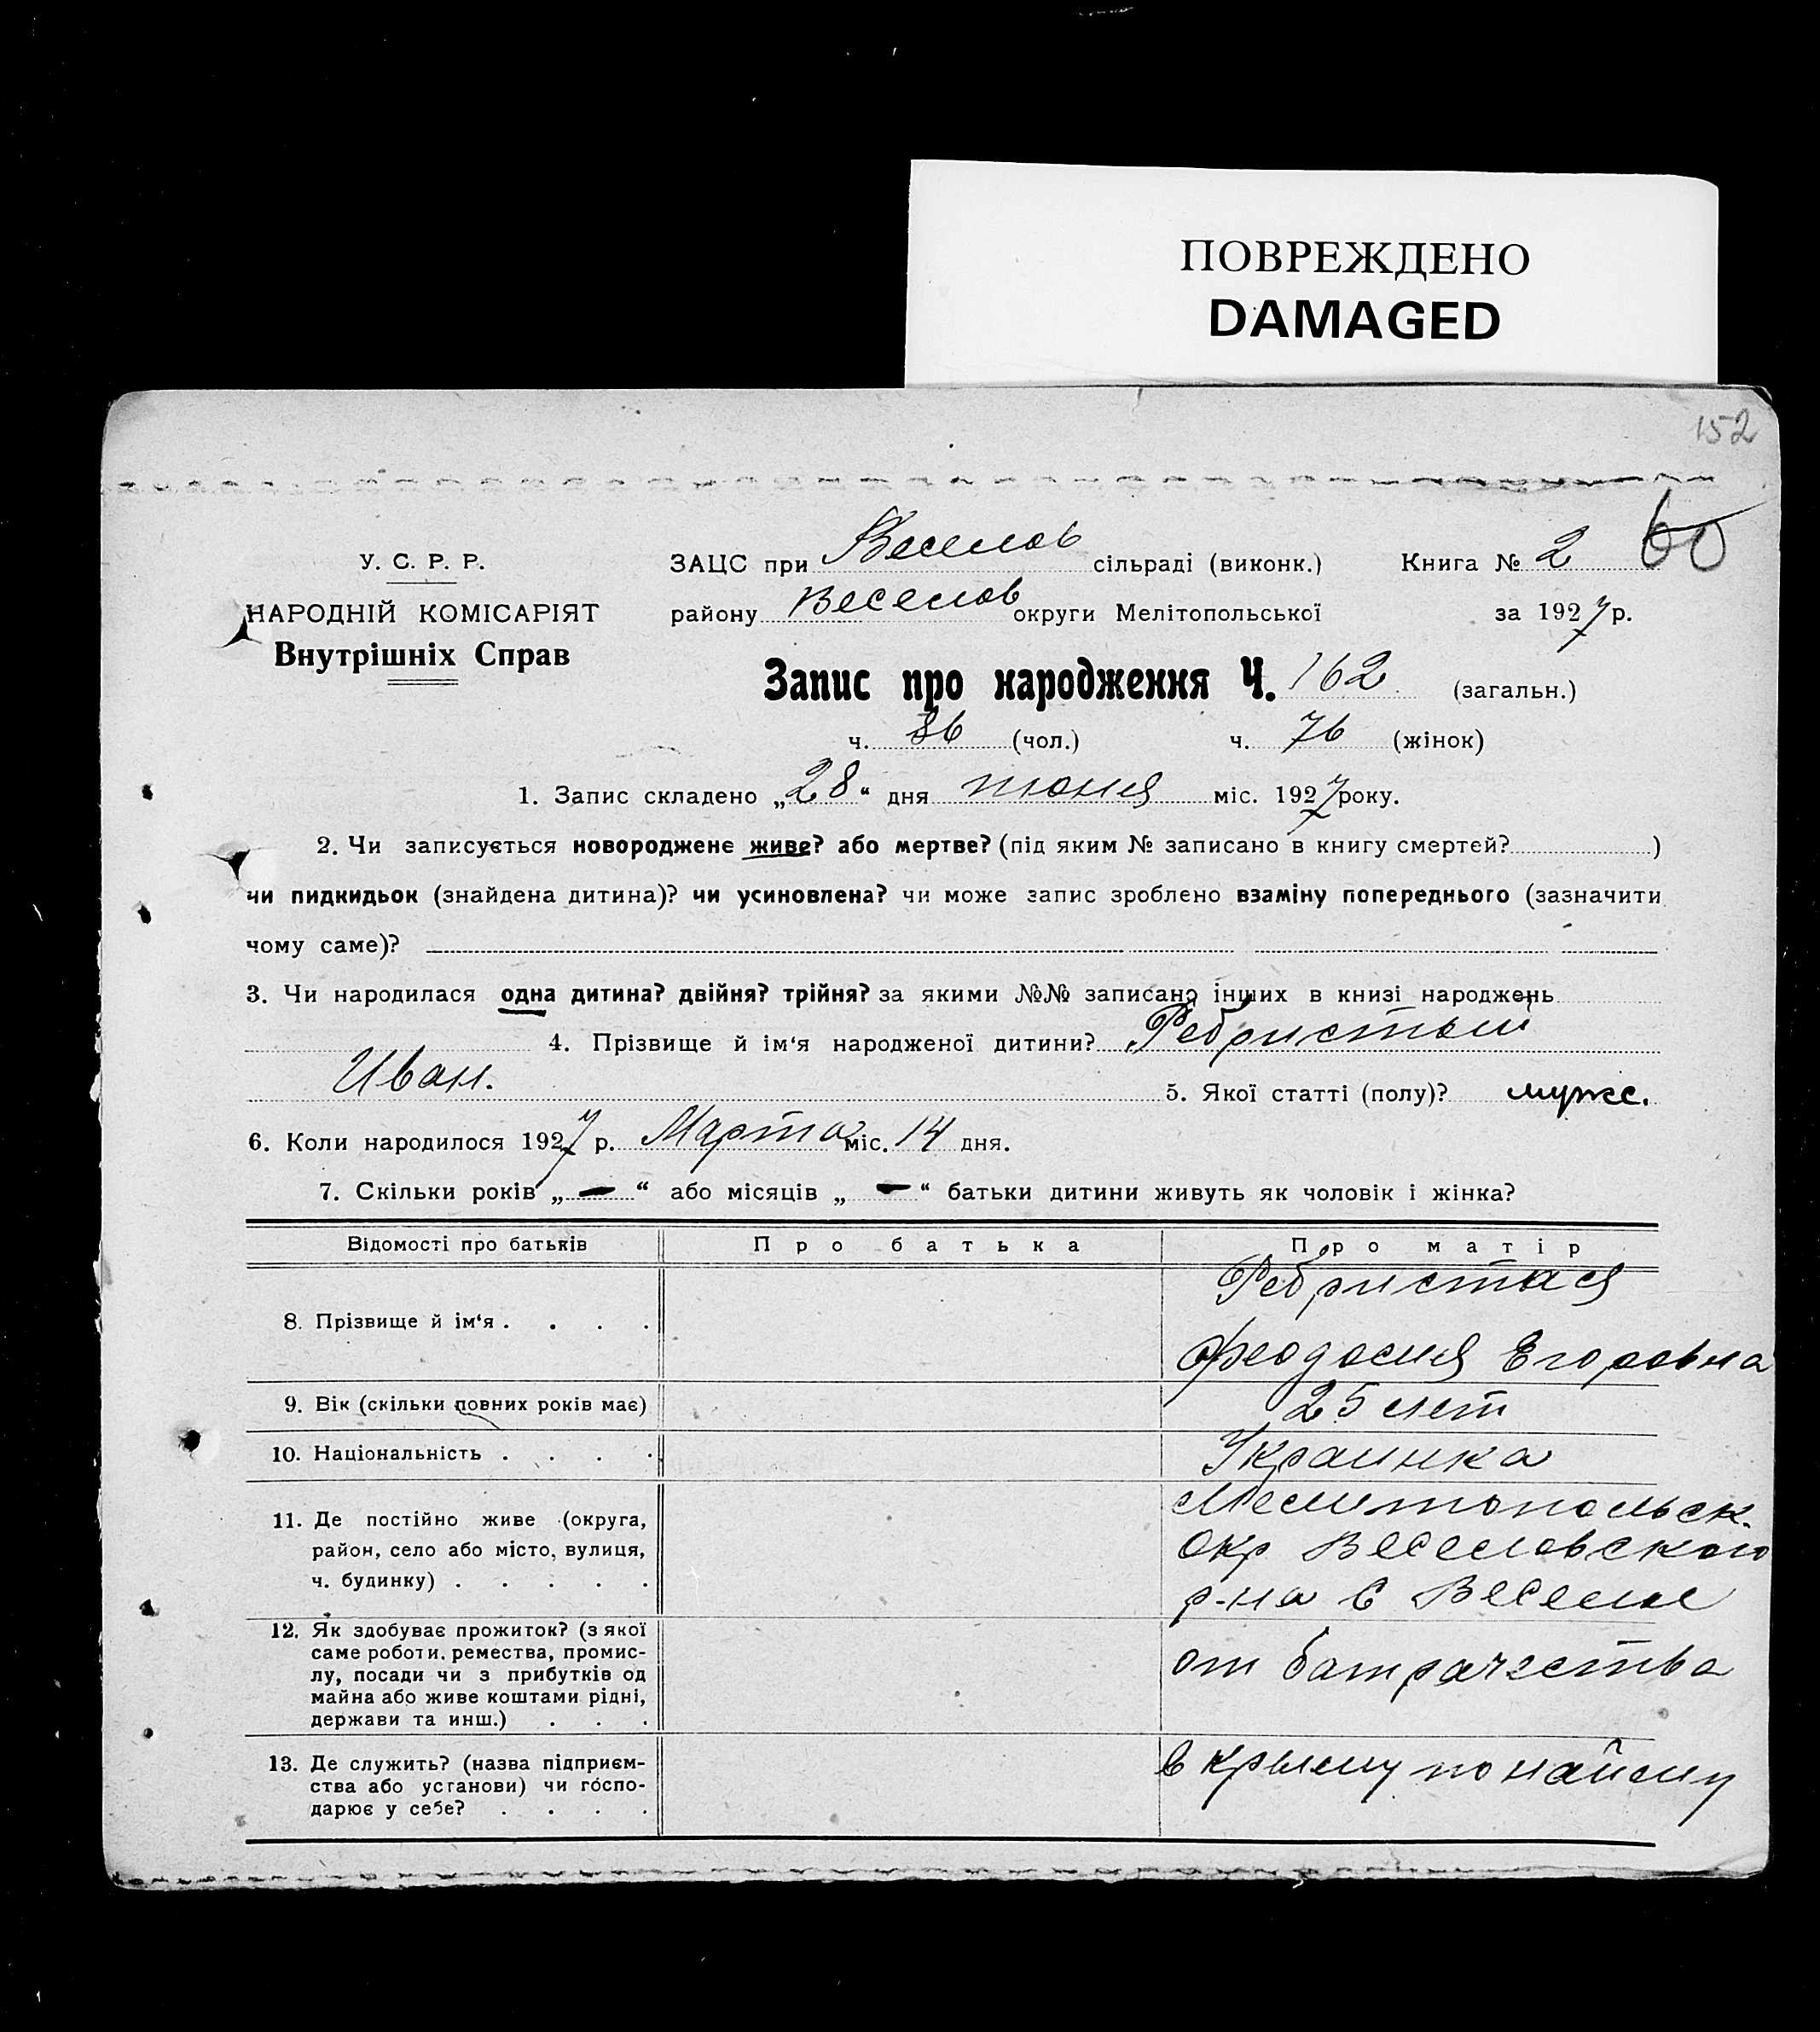 ПОВРЕЖДЕНО
DAMAGED
152
60
У. С. Р. Р.
НАРОДНІЙ КОМІСАРІЯТ
Внутрішніх Справ
ЗАЦС при Веселов сільраді (виконк.) Книга № 2
району Веселов округи Мелітопольської за 1927 р.
Запис про народження Ч. 162 (загальн.)
ч. 86 (чол.) ч. 76 (жінок)
1. Запис складено „28“ дня июня міс. 1927 року.
2. Чи записується новороджене живе? або мертве? (під яким № записано в книгу смертей? )
чи пидкидьок (знайдена дитина)? чи усиновлена? чи може запис зроблено взаміну попереднього (зазначити
чому саме)?
3. Чи народилася одна дитина? двійня? трійня? за якими №№ записано інших в книзі народжень
4. Прізвище й ім‘я народженої дитини? Ребристый
Иван. 5. Якої статті (полу)? мужс.
6. Коли народилося 1927 р. Марта міс. 14 дня.
7. Скільки років „ — “ або місяців „ — “ батьки дитини живуть як чоловік і жінка?
Відомості про батьків Про батька Про матір
8. Прізвище й ім‘я . . . .
Ребристая
Феодосия Егоровна
9. Вік (скільки повних років має) 25 лет
10. Національність . . . . Украинка
11. Де постійно живе (округа,
район, село або місто, вулиця,
ч. будинку) . . . . .
Мелитопольск.
Окр Веселовского
р-на с Веселое
12. Як здобуває прожиток? (з якої
саме роботи, ремества, промис-
лу, посади чи з прибутків од
майна або живе коштами рідні,
держави та инш.) . . .
от батрачества
13. Де служить? (назва підприєм-
ства або установи) чи госпо-
дарює у себе? . . . .
в крыму по найму